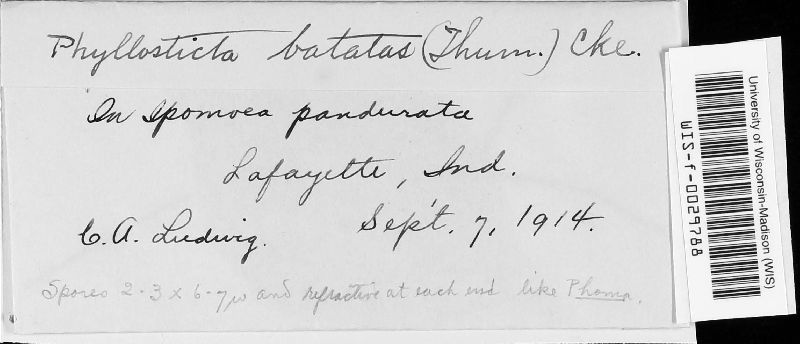 Phyllosticta batatas (Thum.) Cke.
On Ipomoea pandurata
Lafayette, Ind.
C. A. Ludwig. Sept. 7, 1914.
Spores 2-3 x 6-7µ and refractive at each end like Phoma.
University of Wisconsin-Madison (WIS)
WIS-f-0029788